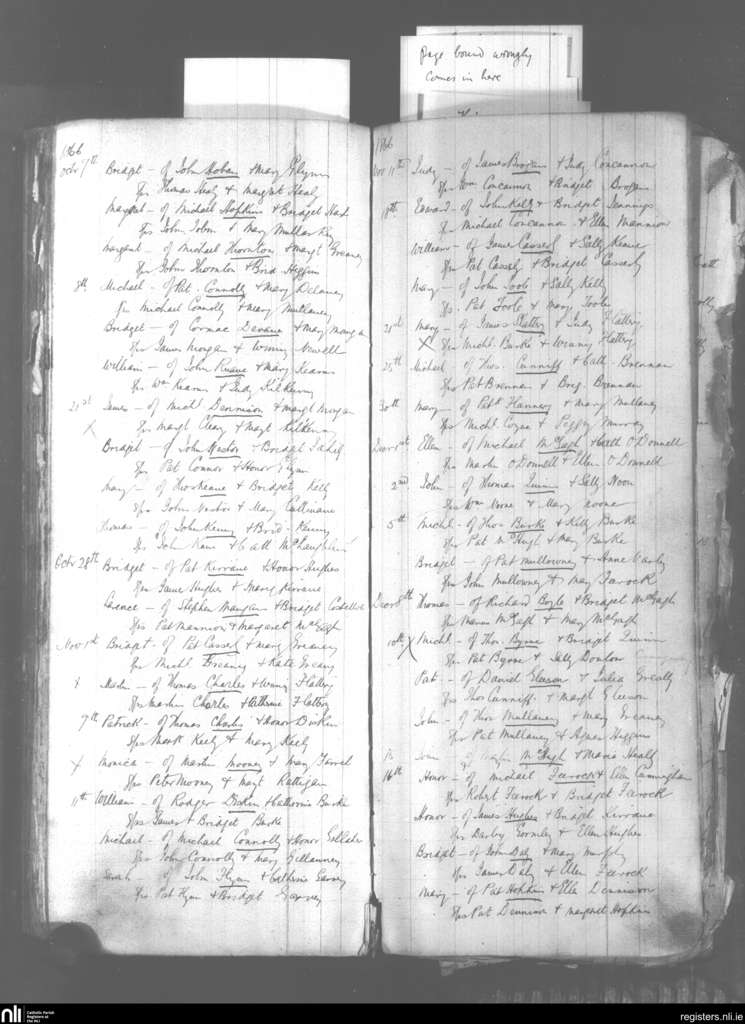 Page bound wrongly
comes in here
1866
Octr 7th Bridget - of John Hoban & Mary Glynn
Sps Thomas Healy & Margret Healy
Margret - of Michael Hopkins & Bridget
Sps John & Mary
Margret - of Michael Thornton & Margt Greaney
Sps John Thornton & Brid Higgins
8th Michael - of Pat Connolly & Mary Delaney
Sps Michael Connolly & Mary Mullaney
Bridget - of Cormac Devane & Mary Mangan
Sps James Morgan & Winny Newell
William - of John Ruane & Mary Kearns
Sps Wm Kearns & Judy Kilkenny
21st James - of Michl Dennison & Margt Morgan
X Sps Margt Cleary & Margt Kilkenny
Bridget - of John Nestor & Bridget
Sps Pat Connor & Honor Flynn
Mary - of Thos Keane & Bridget Kelly
Sps John Nestor & Mary Cullinane
Thomas - of John Kenny & Brid. Kenny
Sps John Kane & Cath McLaughlin
Octr 28th Bridget - of Pat Kirrane & Honor Hughes
Sps James Hughes & Mary Kirrane
- of Stephen Mangan & Bridget Costelloe
Sps Pat Mannion & Margaret
Novr 1st Bridget - of Pat Cassely & Mary Greaney
Sps Michl Greaney & Kate Greany
X Martin - of Thomas Charles & Winny Flattery
Sps Martin Charles & Catherine Flattery
7th Patrick - of Thomas Charles & Honor Diskin
Sps Mark Keely & Mary Keely
X Monica - of Martin Mooney & Mary Farrel
Sps Peter Mooney & Margt Rattigan
11th William - of Rodger Diskin & Catherine Burke
Sps James & Bridget Burke
Michael - of Michael Connolly & Honor
Sps John Connolly & Mary
Sarah - of John Flynn & Catherine Garvey
Sps Pat Flynn & Bridget Garvey
1866
Novr 11th Judy - of James Brogan & Judy Concannon
Sps Wm Concannon & Bridget Brogan
18th Edward - of John Kelly & Bridget Jennings
Sps Michael Concannon & Ellen Mannion
William - of James Cassely & Sally Keane
Sps Pat Cassely & Bridget Cassely
Mary - of John Toole & Sally Kelly
Sps. Pat Toole & Mary Toole
21st Mary - of James Slattery & Judy Flattery
X Sps Michl. Burke & Winny Flattery
25th Michael - of Thos. Cunniff & Cath. Brennan
Sps Pat Brennan & Brig. Brennan
30th Mary - of Patk Flannery & Mary Mullaney
Sps Michl Coyne & Peggy Murray
Decr 1st Ellen - of Michael McGagh & Cath O'Donnell
Sps Martin O'Donnell & Ellen O'Donnell
2nd John - of Thomas Quinn & Sally Noon
Sps Wm Noone & Mary Noone
5th Michl - of Thos Burke & Kitty Burke
Sps Pat McHugh & Mary Burke
Bridget - of Pat Mullowney & Anne
Sps John Mullowney & Mary Farock
Decr 8th Thomas - of Richard Boyle & Bridget McGagh
Sps McGagh & Mary McGagh
10th X Michl - of Thos. Byrne & Bridget Quinn
Sps. Pat Byrne & Sally Donlon
Pat - of Daniel Gleeson & Julia Greally
Sps Thos Cunniff & Margt Gleeson
John - of Thos Mullaney & Mary Greaney
Sps Pat Mullaney & Agnes Higgins
of McHugh & Maria Healy
16th Honor - of Michael Farock & Ellen Cunningham
Sps Robert Farock & Bridget Farock
Honor - of James Hughes & Bridget Kirrane
Sps Darby Gormley & Ellen Hughes
Bridget - of John Daly & Mary Murphy
Sps James Daly & Ellen Farock
Mary - of Pat Hopkins & Ellen Dennison
Sps Pat Dennison & Margaret Hopkins
nli
Catholic Parish
Registers at
the NLI
registers.nli.ie